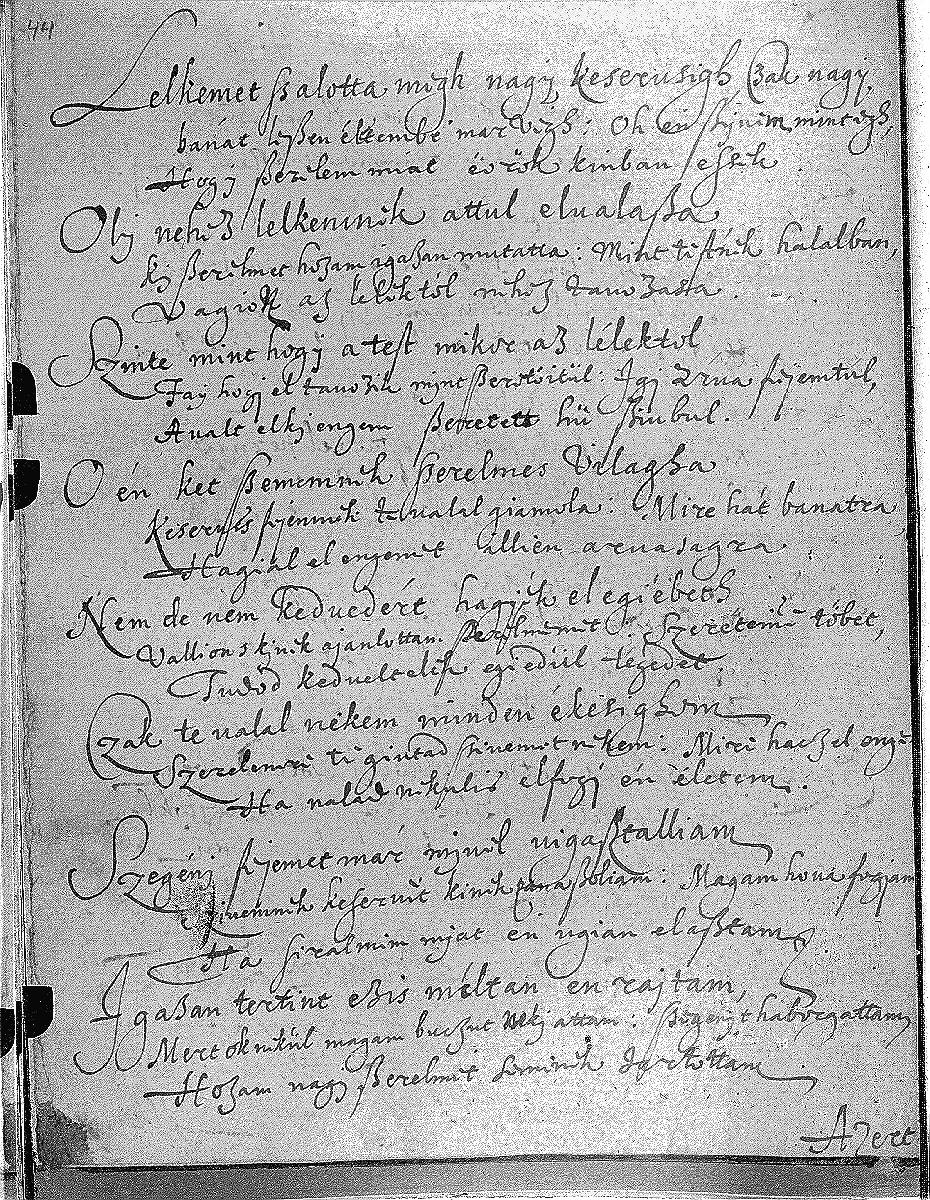 44
Lelkemet szalotta migh nagy keserusigh, Czak nagy,
banat leszen éltembe mar vigh: Oh én szivim mint igh,
Hogy szerelem miat örök kinban essek
Oly nehez lelkemnek attul elualasa
Ky szerelmet hozam igasan mutatta: Mint testnek halalban,
Vagiok az lelektöl nehez tauozasa.
Szinte mint hogy a test mikor az lélektol
Fay hogy el tauozik mynt szeretöitül: Igy arua szyemtul,
Aualt elky engem szeretett hü sziubul.
O én ket szememnek szerelmes Vilagha
Keserues szyemnek te valal giamola: Mire hát banatra
Hagial el engemet illien aruasagra
Nem de nem kedvedért hagyék el egiébeth
Vallion s kinek ajanlottam szerelmemet: Szeretemi töbet,
Tudod kedueltelek egiedül tégedet.
Czak te valal nékem minden ékesighom
Szerelemre te gintad szivemet nekem: Mire hacz el enge
Ha nalad nekulis elfogy én életem.
Szegény szyemet már myuel uigasztalliam
szivemnek keseruét kinek pana soliam: Magam hova fogjam
Ha siralmim myat én ugian elasztam
Igasan tertint ezis méltan én rajtam,
Mert ok nekül magam buczut nekj attam: szegenyt haborgattam
Hozam nagy szerelmét semmiek tartottam
Azert